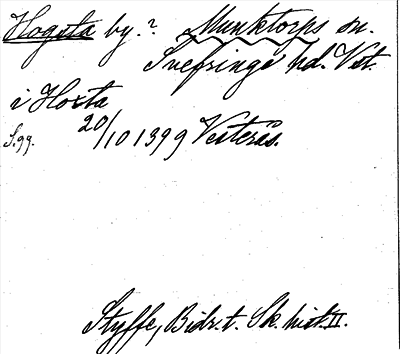 Hogsta by.? Munktorps sn.
Snefringe hd. Vst.
i Hoxta
S. 99. 20/10 1399 Vesterås.
Styffe, Bidr. t. Sk. hist. II.